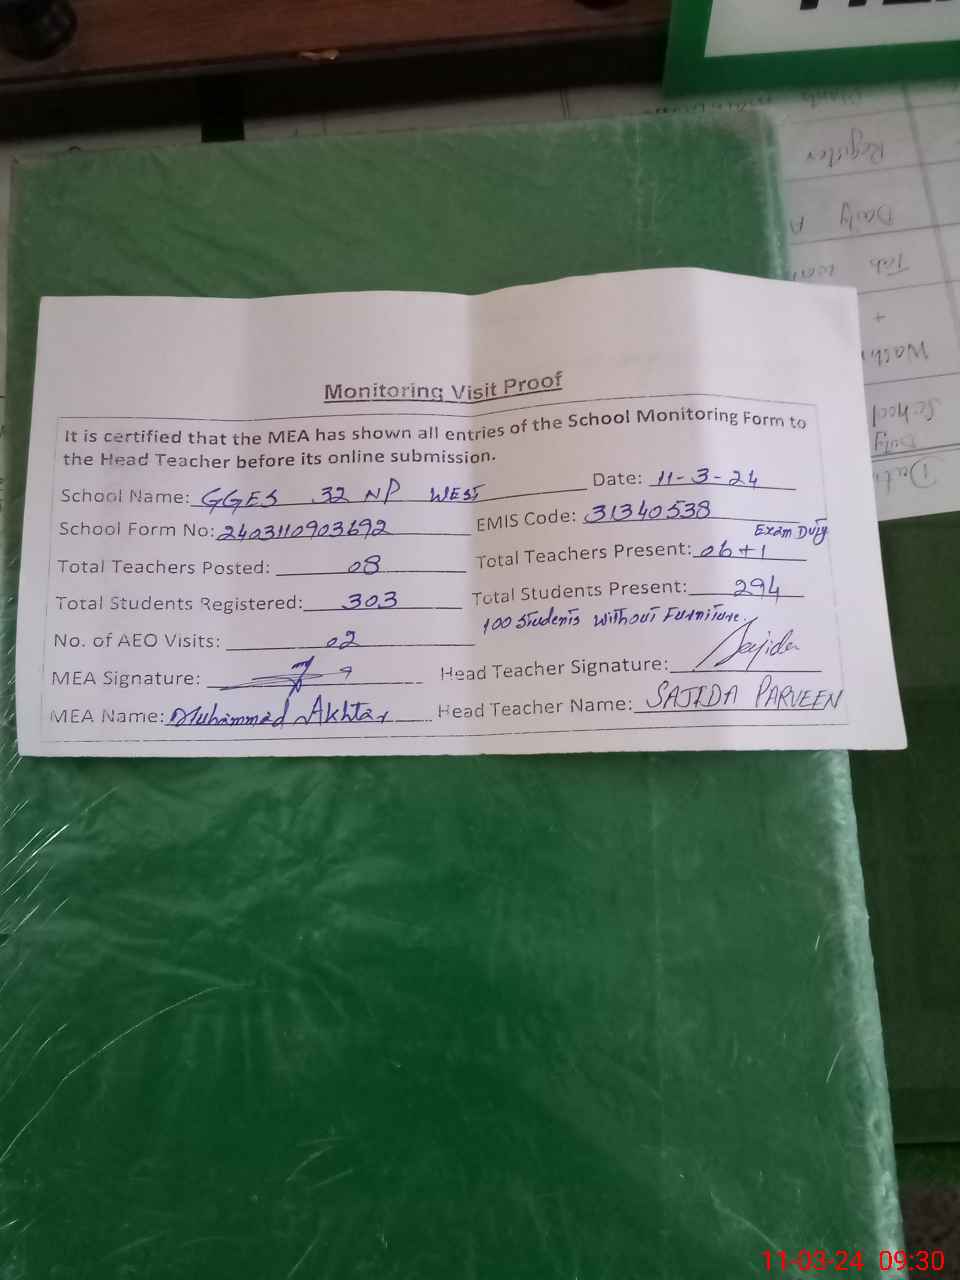 Monitoring Visit Proof
It is certified that the MEA has shown all entries of the School Monitoring Form to
the Head Teacher before its online submission.
School Name: GGES 32 NP WEST Date: 11-3-24
School Form No: 2403110903692 EMIS Code: 31340538
Exam Duty
Total Teachers Posted: 08 Total Teachers Present: 06+1
Total Students Registered: 303 Total Students Present: 294
100 Students Without Furniture.
No. of AEO Visits: 02
MEA Signature: Head Teacher Signature: Sajida
MEA Name: Muhammad Akhtar Head Teacher Name: SAJIDA PARVEEN
Register
Daily A
Tab
+
Wash
School
Duty
11-03-24 09:30